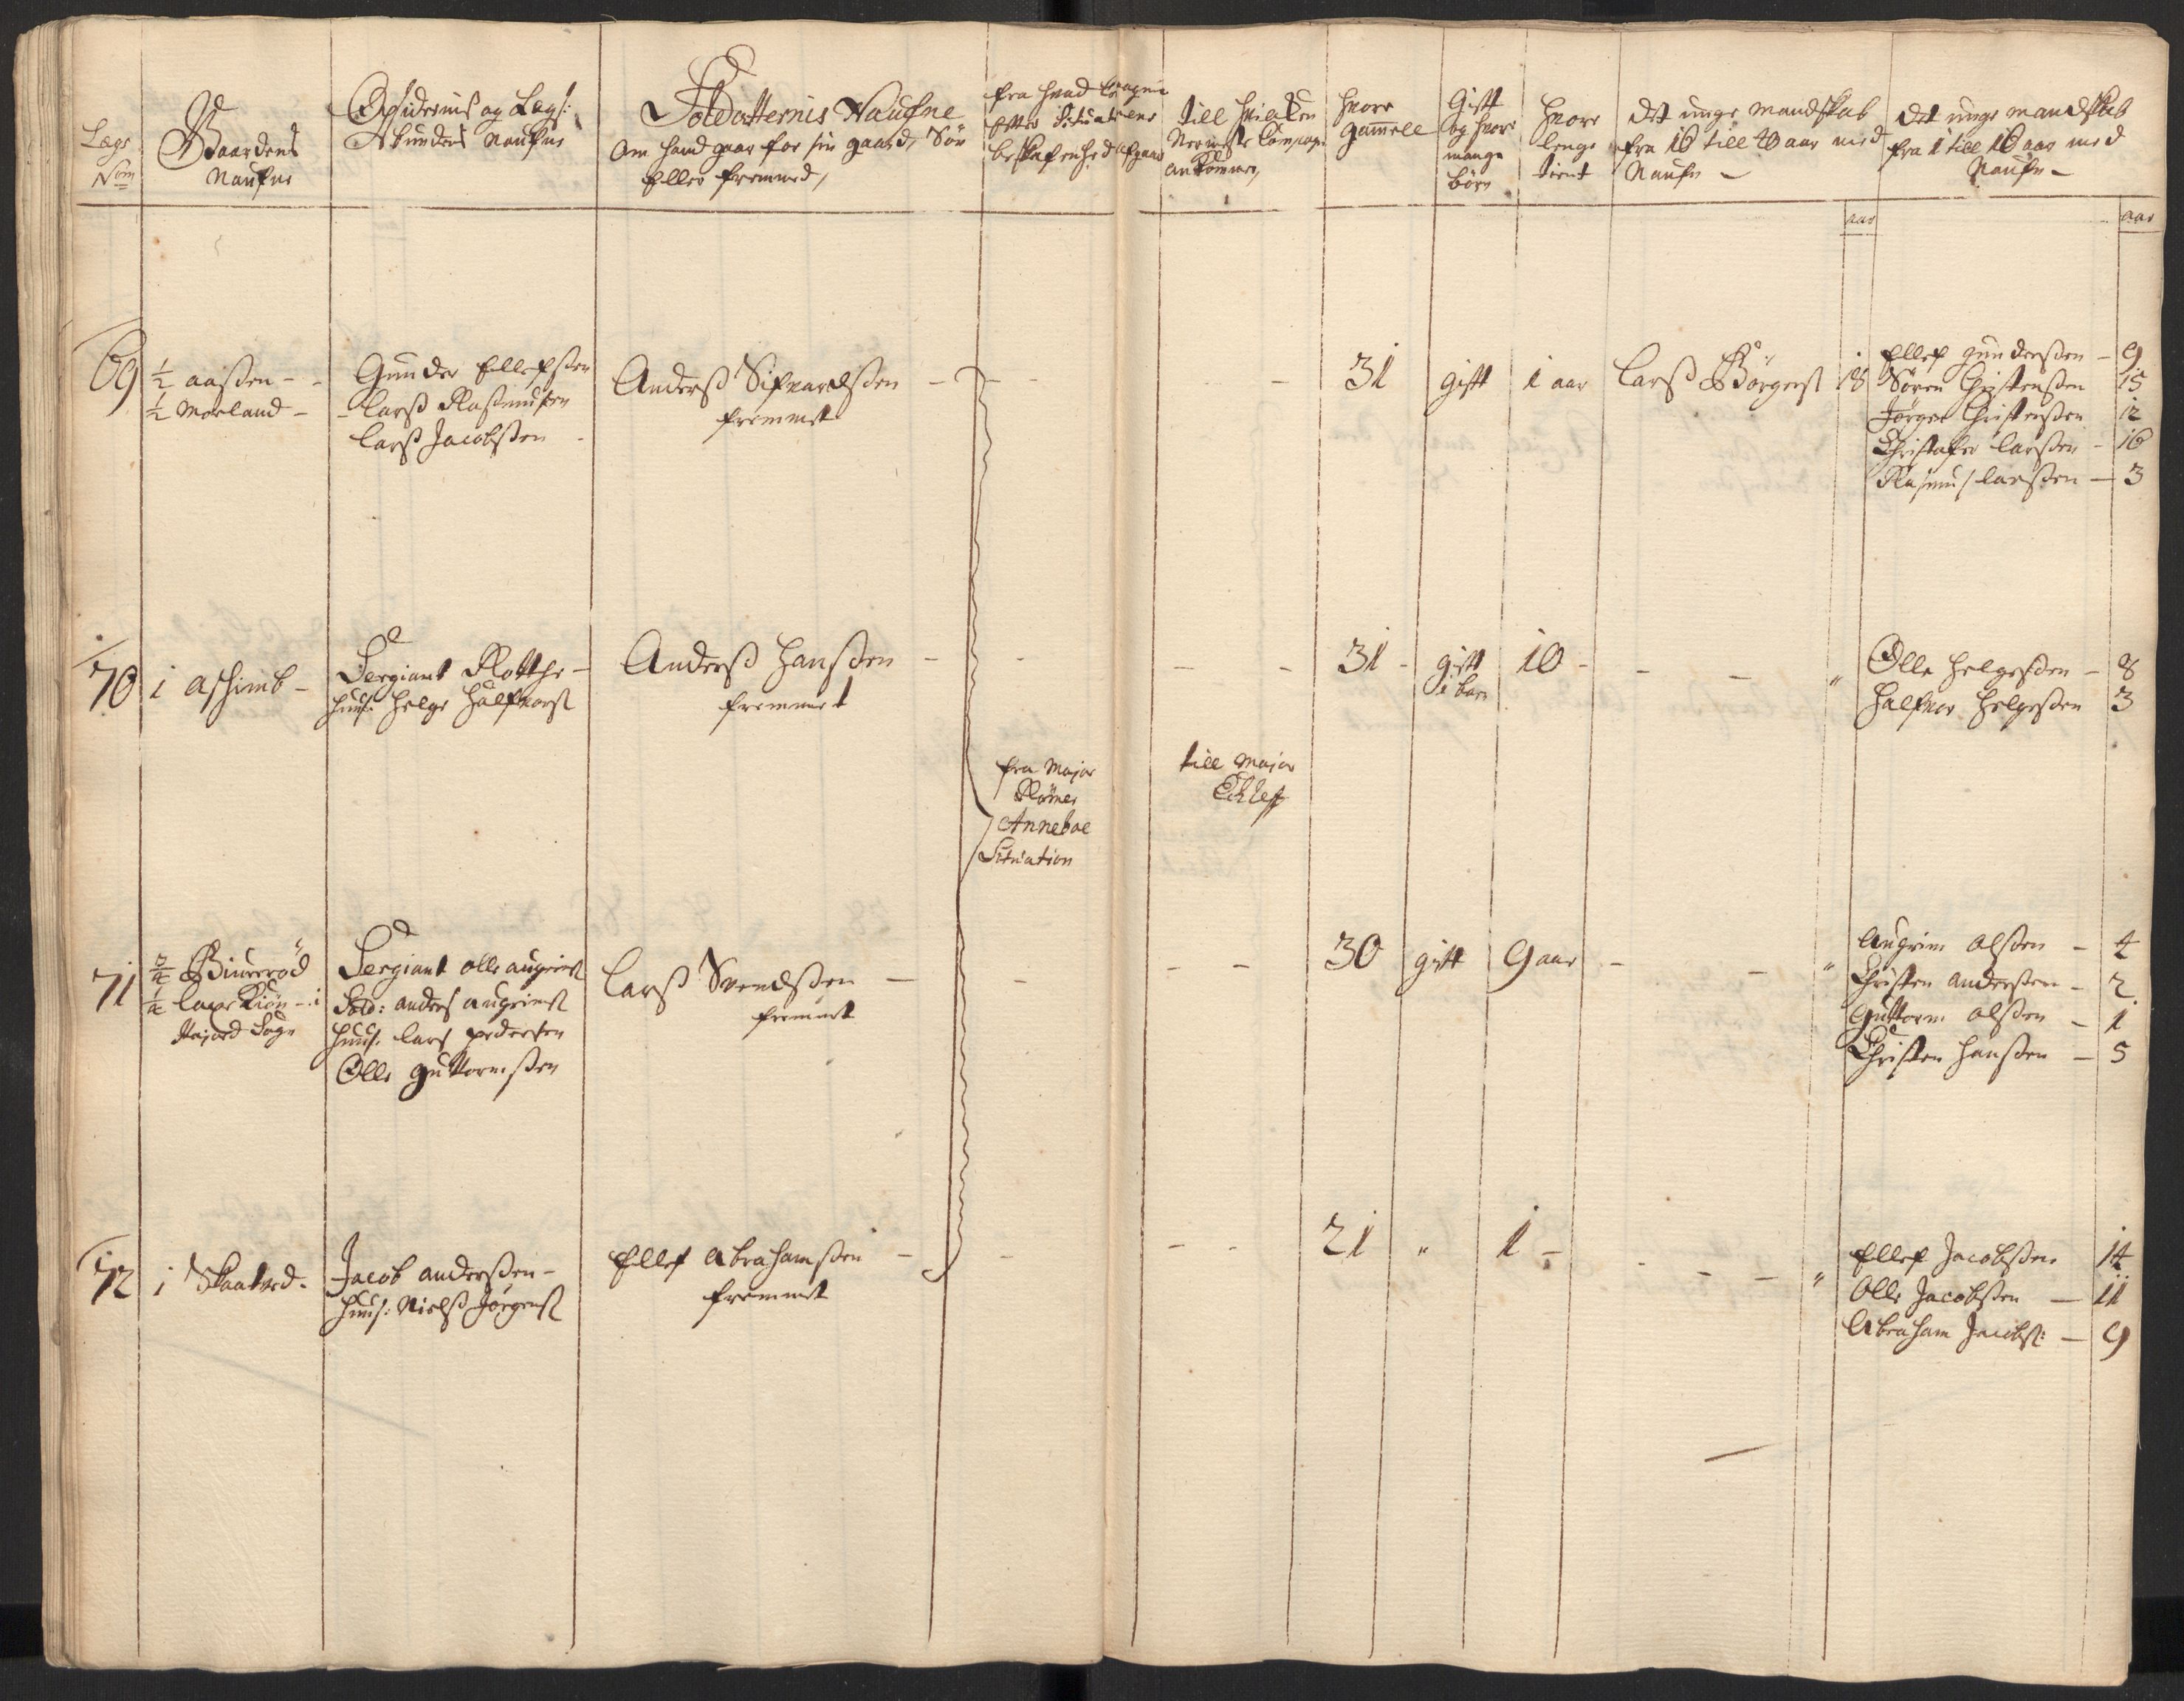 Legs
Nom
Gaardens
Naufne
Opsidernis og Legs:
Kundens Naufne
Soldatternis Naufne
Om hand gaar for sin gaard, Søn
Eller fremmed,
fra hvad Compagnie
Efter Situationens
beskafenhed afgaar
till hvilcken
Nermeste Compag:
ankommer,
hvor
gammell
Gift
og hvor
mange
børn
hvor
lenge
tient
Det unge mandskab
fra 16 till 40 aar med
Naufn –
Det unge mandskab
fra 1 till 16 aar med
Naufn –
aar
aar
69
½ aassen –
½ Morland –
Gunder Ellefssen
– Lars Rasmusen
Lars Jacobssen
Anderss Sifvardssen –
fremmet
31
gift
1 aar
Larss Børgens
18
Ellef Gunderssen – 9
Søren Christenssen 15
Jørgen Christenssen 12
Christofer Larssen – 16
Rasmus Larssen – 3
70
1 Ashimb –
Sergiant Rotthe –
huus: Helge Halfvors
Anderss Hanssen –
fremmet
31 –
gift
1 barn
10 –
"
Olle Helgessen – 8
Halfvor Helgessen 3
fra Major
Rømer
Annebae
Situation
till Major
Eckleff
71
¾ Biurerød
¼ Laxe Kiøn – i
Sogn
Sergiant Olle augrims
Sold: anders augrims
huus: Lars pedersen
Olle Guttormssen
Larss Svendssen –
fremmet
30
gift
9 aar
"
Augrim Olssen – 4
Christen Anderssen – 2
Guttorm Olssen – 1
Christen Hanssen – 5
72
1 Skaatved.
Jacob Anderssen –
huus: Nielss Jørgens
Ellef Abrahamssen –
fremmet
21
"
1 –
"
Ellef Jacobssen 14
Olle Jacobssen – 11
Abraham Jacobs: – 9